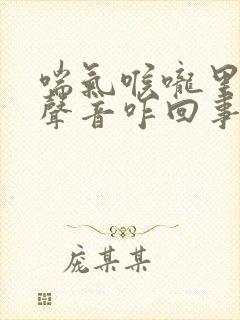 喘氣喉嚨里
聲音咋回事
庞某某